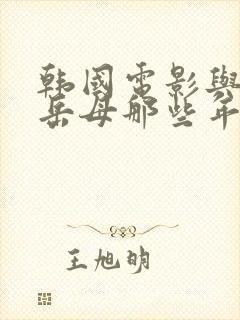 韩國電影與
岳母那些年
王旭明